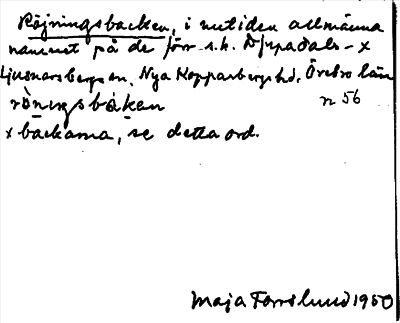 Röjningsbacken, i nutiden allmänna
namnet på de förr s.k. Djupadals- x
Ljusnarsbergs sn. Nya Kopparbergs hd. Örebro län
röningsbàkan n 56
x bäckarna, se detta ord.
Maja Forsslund 1950